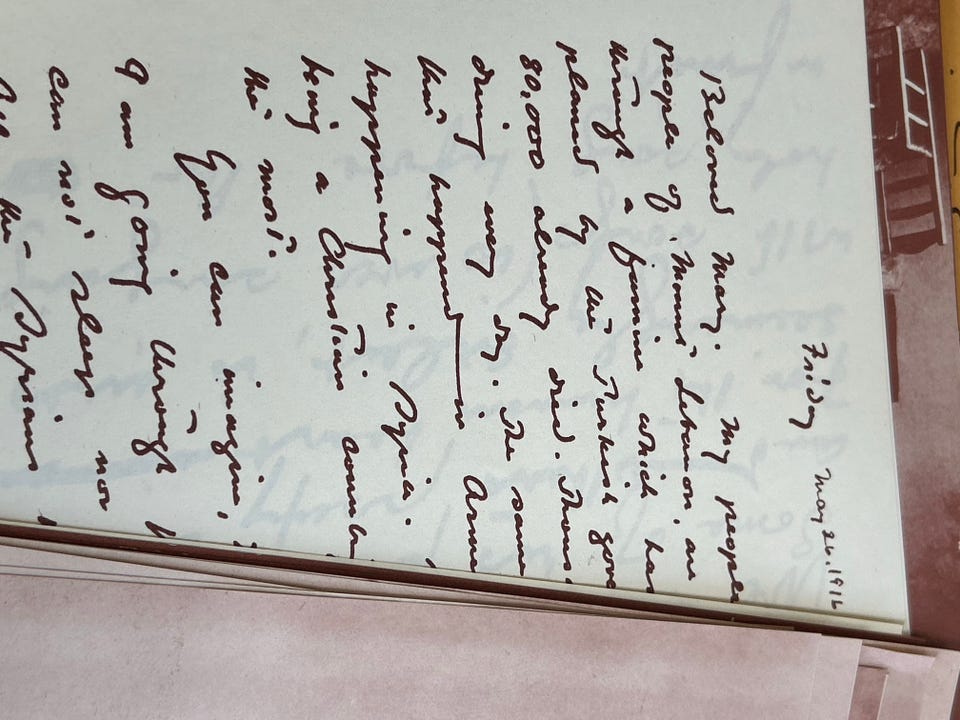 Friday May 26.1916
Beloved Mary. My people
people of Mount Lebanon, are
through a famine which has
planned by the Turkish gove
80,000 already died. Thous
dying every day. The same
that happened in Arme
happening in Syria.
being a Christian count
the most.
You can imagine,
I am going through
can not sleep nor
the Syrians